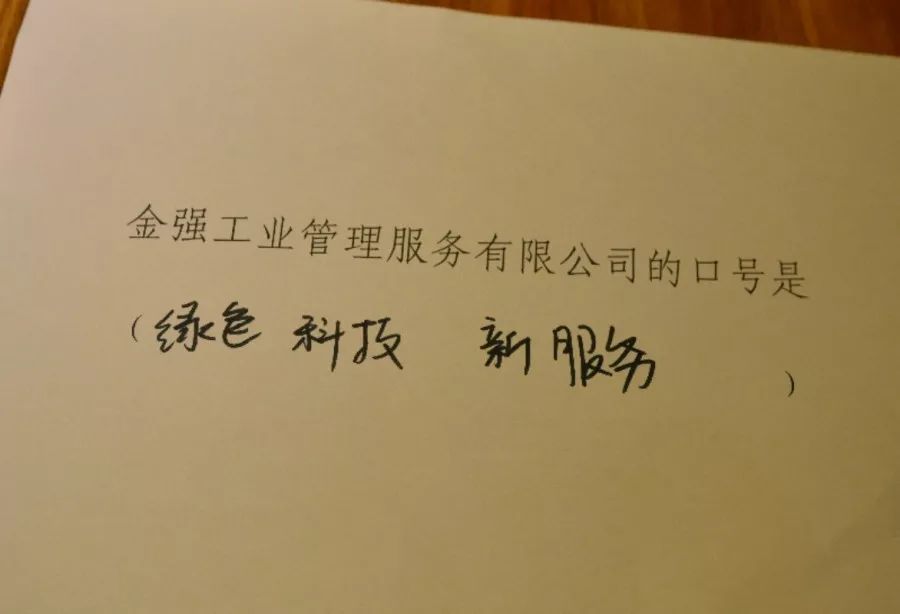 金强工业管理服务有限公司的口号是
（绿色 科技 新服务 ）